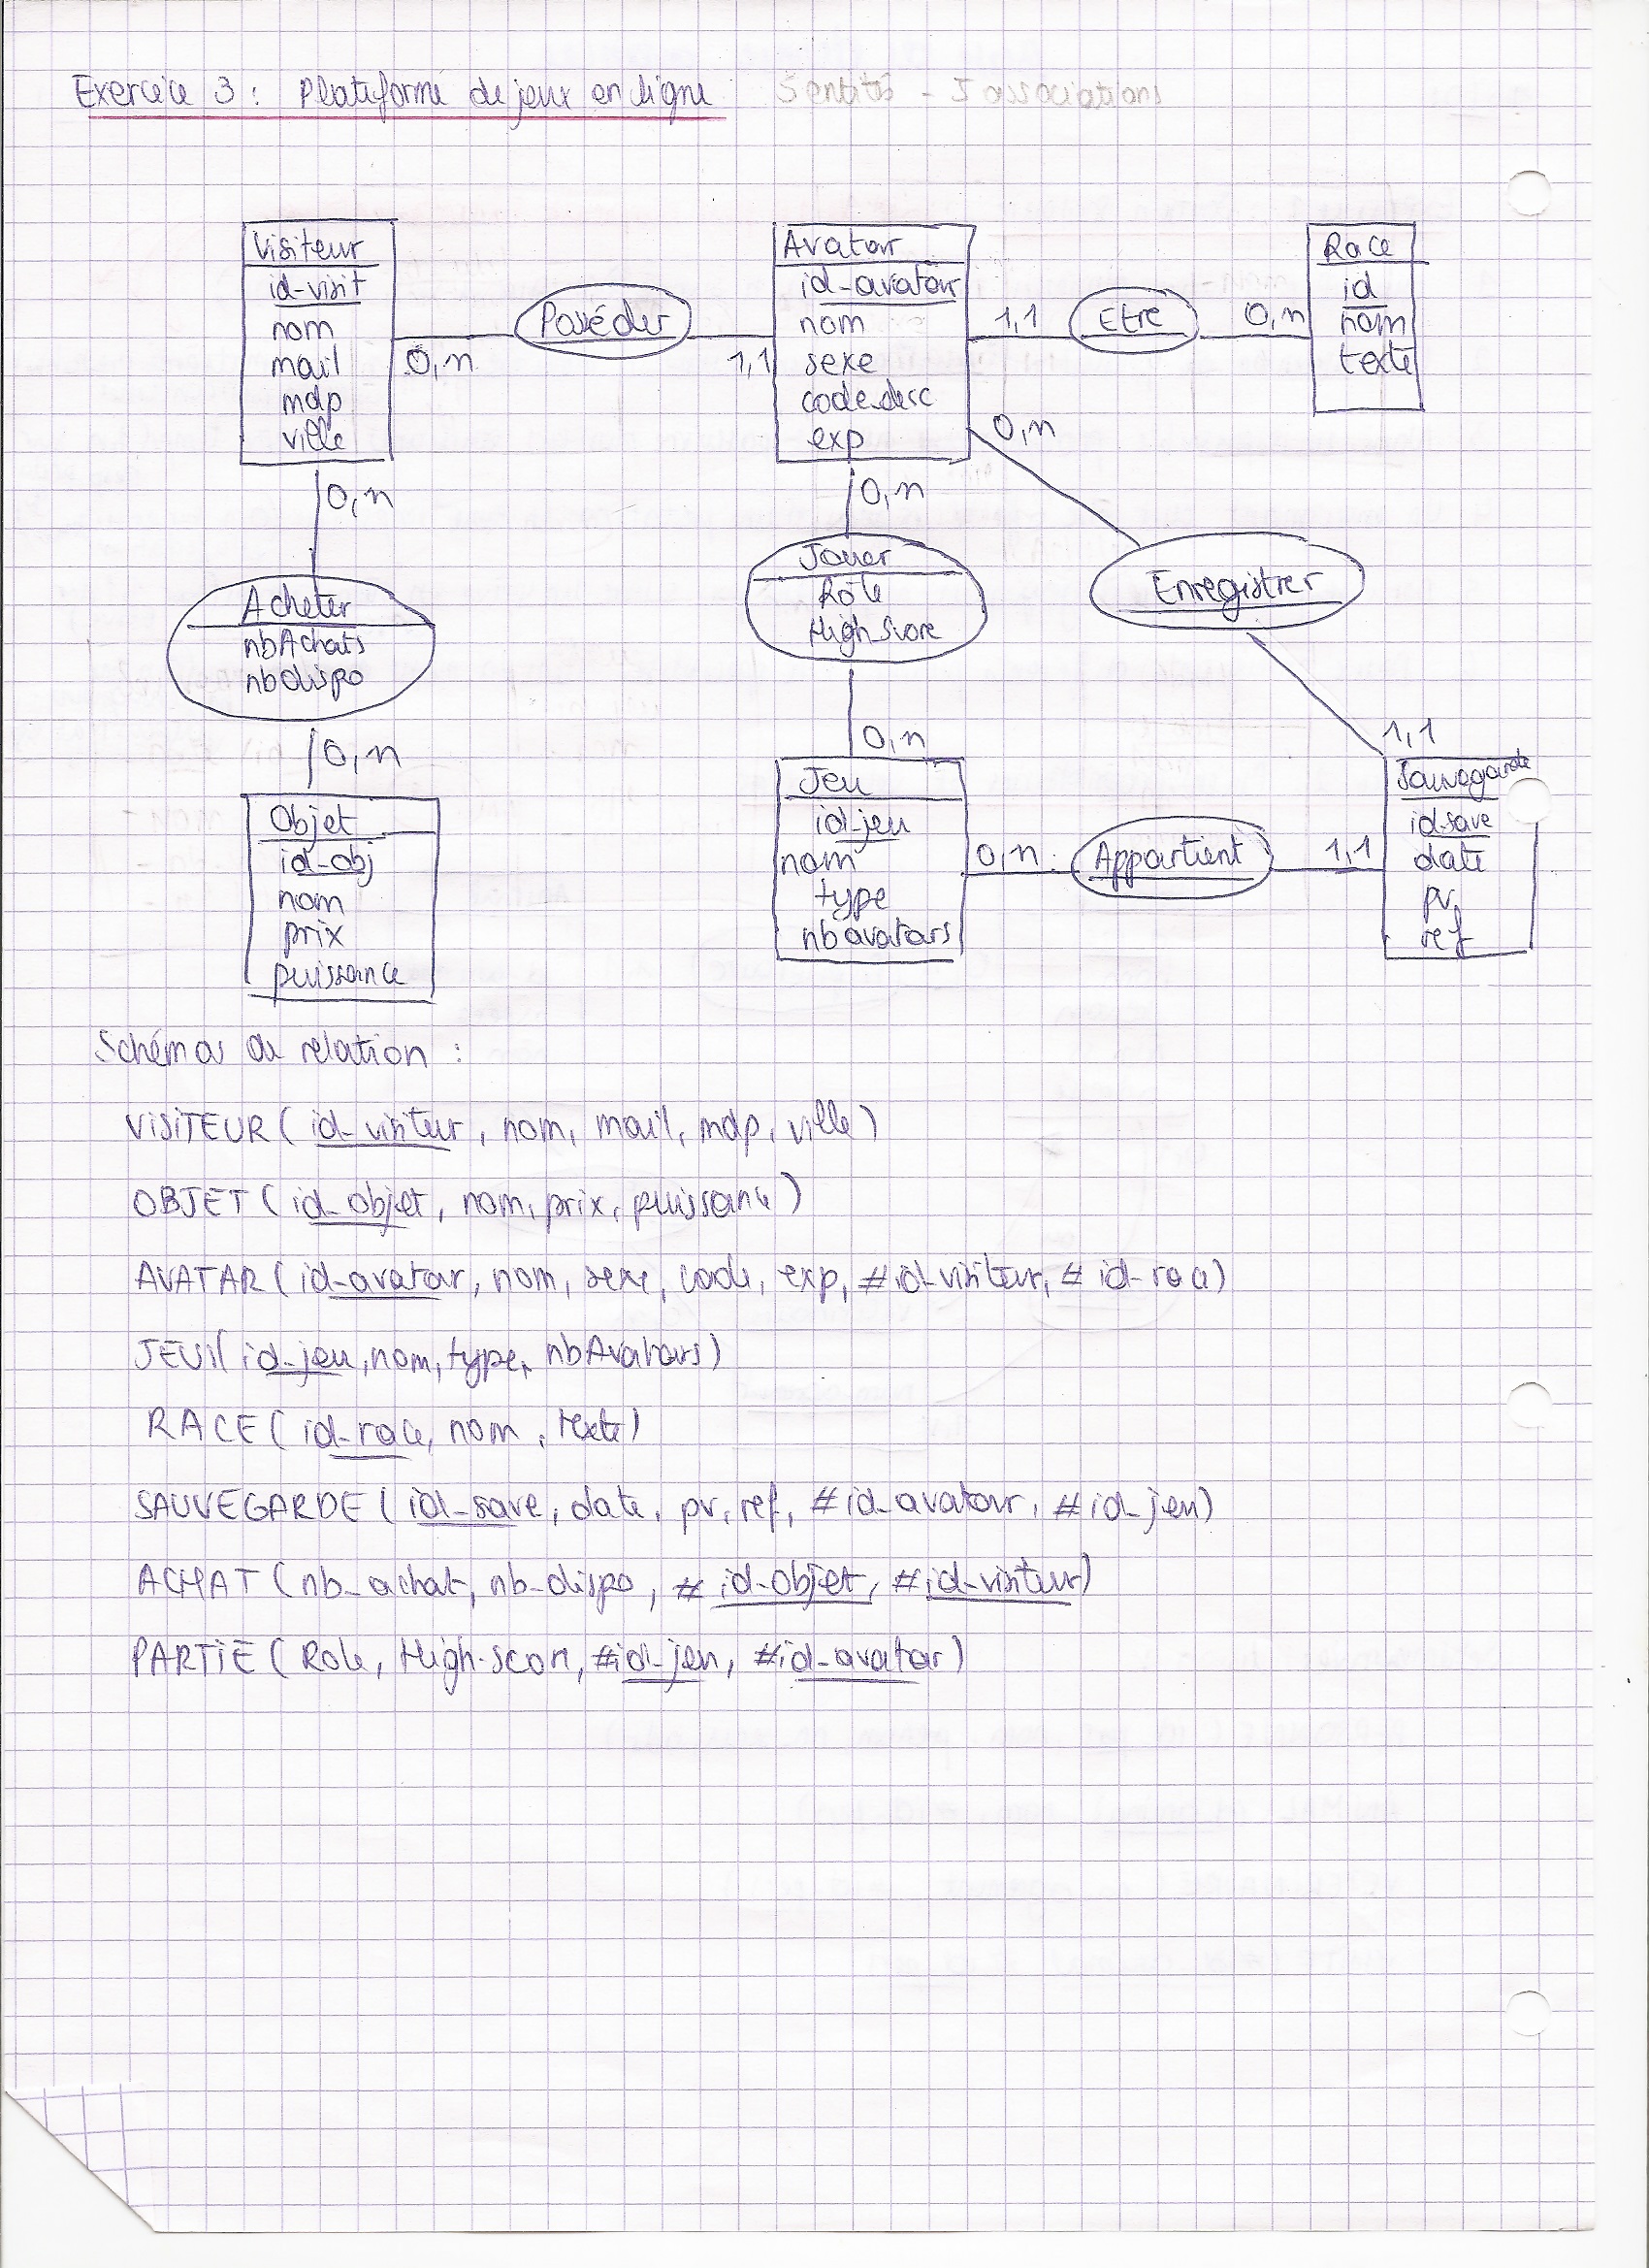 Exercice 3 : Plateforme de jeux en ligne 5 entités - 5 associations
Visiteur
id-visit
nom
mail
mdp
ville
0,n
Posséder
1,1
Avatar
id-avatar
nom
sexe
code_desc
exp
1,1
Etre
0,n
Race
id
nom
texte
0,n
0,n
0,n
Acheter
nbAchats
nbdispo
Jouer
Rôle
High_Score
Enregistrer
0,n
0,n
1,1
Objet
id-obj
nom
prix
puissance
Jeu
id_jeu
nom
type
nb avatars
0,n
Appartient
1,1
Sauvegarde
id.save
date
pv
ref
Schémas de relation :
VISITEUR ( id_visiteur, nom, mail, mdp, ville)
OBJET ( id_objet, nom, prix, puissance)
AVATAR ( id_avatar, nom, sexe, code, exp, #id-visiteur, # id-race)
JEU( id_jeu, nom, type, nbAvatars)
RACE ( id_race, nom, texte)
SAUVEGARDE ( id_save, date, pv, ref, #id_avatar, #id_jeu)
ACHAT ( nb_achat, nb_dispo, # id_objet, #id_visiteur)
PARTIE ( Role, High-score, #id_jeu, #id_avatar)